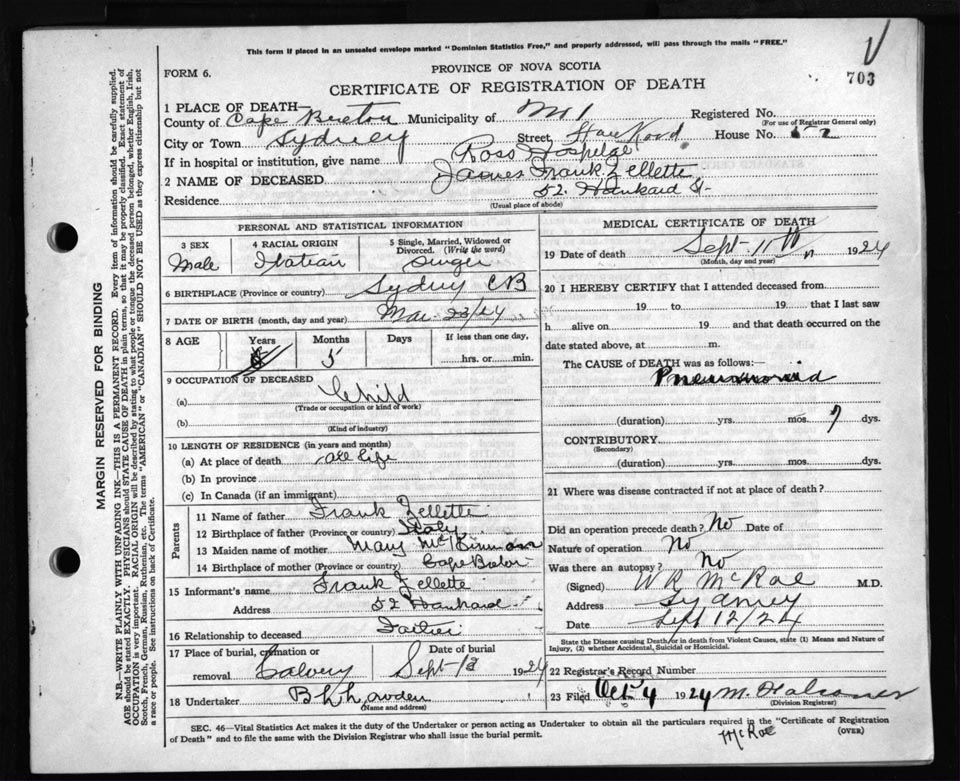 This form if placed in an unsealed envelope marked "Dominion Statistics Free," and properly addressed, will pass through the mails "FREE."
FORM 6.
PROVINCE OF NOVA SCOTIA
703
CERTIFICATE OF REGISTRATION OF DEATH
1 PLACE OF DEATH—
County of Cape Breton Municipality of Registered No.
(For use of Registrar General only)
City or Town Sydney Street, House No. 52
If in hospital or institution, give name Ross
2 NAME OF DECEASED James Frank Zellette
Residence 52. Hankard St
(Usual place of abode)
PERSONAL AND STATISTICAL INFORMATION
3 SEX Male
4 RACIAL ORIGIN Italian
5 Single, Married, Widowed or Divorced. (Write the word) Single
6 BIRTHPLACE (Province or country) Sydney CB
7 DATE OF BIRTH (month, day and year) Mar 23/24
8 AGE Years Months 5 Days If less than one day, hrs. or min.
9 OCCUPATION OF DECEASED
(a) Child
(Trade or occupation or kind of work)
(b)
(Kind of industry)
10 LENGTH OF RESIDENCE (in years and months)
(a) At place of death all life
(b) In province
(c) In Canada (if an immigrant)
Parents
11 Name of father Frank Zellette
12 Birthplace of father (Province or country) Italy
13 Maiden name of mother Mary McKinnon
14 Birthplace of mother (Province or country) Cape Breton
15 Informant's name Frank Zellette
Address 52 Hankard
16 Relationship to deceased Father
17 Place of burial, cremation or removal Calvery Date of burial Sept 12 1924
18 Undertaker
(Name and address)
MEDICAL CERTIFICATE OF DEATH
19 Date of death Sept 11th 1924
(Month, day and year)
20 I HEREBY CERTIFY that I attended deceased from
19 to 19 that I last saw
h alive on 19 and that death occurred on the
date stated above, at m.
The CAUSE of DEATH was as follows:—
Pneumonia
(duration) yrs. mos. 7 dys.
CONTRIBUTORY
(Secondary)
(duration) yrs. mos. dys.
21 Where was disease contracted if not at place of death?
Did an operation precede death? No Date of
Nature of operation No
Was there an autopsy? No
(Signed) W R McRae M.D.
Address Sydney
Date Sept 12/24
State the Disease causing Death, or in death from Violent Causes, state (1) Means and Nature of
Injury, (2) whether Accidental, Suicidal or Homicidal.
22 Registrar's Record Number
23 Filed Oct 4 1924
(Division Registrar)
SEC. 46—Vital Statistics Act makes it the duty of the Undertaker or person acting as Undertaker to obtain all the particulars required in the "Certificate of Registration
of Death" and to file the same with the Division Registrar who shall issue the burial permit.
(OVER)
McRae
MARGIN RESERVED FOR BINDING
N.B.—WRITE PLAINLY WITH UNFADING INK—THIS IS A PERMANENT RECORD. Every item of information should be carefully supplied.
AGE should be stated EXACTLY. PHYSICIANS should STATE CAUSE OF DEATH in plain terms, so that it may be properly classified. Exact statement of
OCCUPATION is very important. RACIAL ORIGIN will be described by stating to what people or tongue the deceased person belonged, whether English, Irish,
Scotch, French, German, Russian, Ruthenian, etc. The terms "AMERICAN" or "CANADIAN" SHOULD NOT BE USED as they express citizenship but not
a race or people. See instructions on back of Certificate.